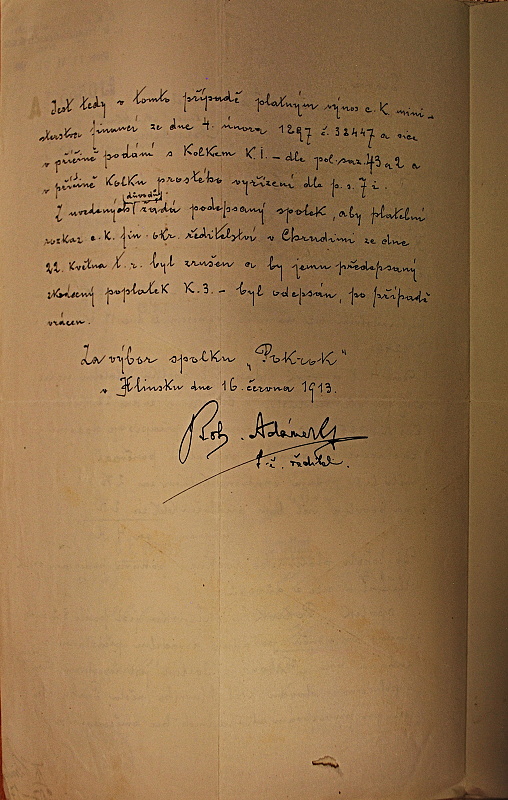 Jest tedy v tomto případě platným výnos c. K. mini-
sterstva financí ze dne 4. února 1897 č. 32447 a sice
v příčině podání s Kolkem K.1.– dle pol. saz. 43 a 2 a
v příčině Kolku prostého vyřízení dle p. s. 7 i.
důvodů
Z uvedených žádá podepsaný spolek, aby platební
rozkaz c. k. fin. okr. ředitelství v Chrudimi ze dne
22. Května t. r. byl zrušen a by jemu předepsaný
zkrácený poplatek K. 3.– byl odepsán, po případě
vrácen.
Za výbor spolku „Pokrok"
v Hlinsku dne 16. června 1913.
Rob. Adámek
t. č. ředitel.